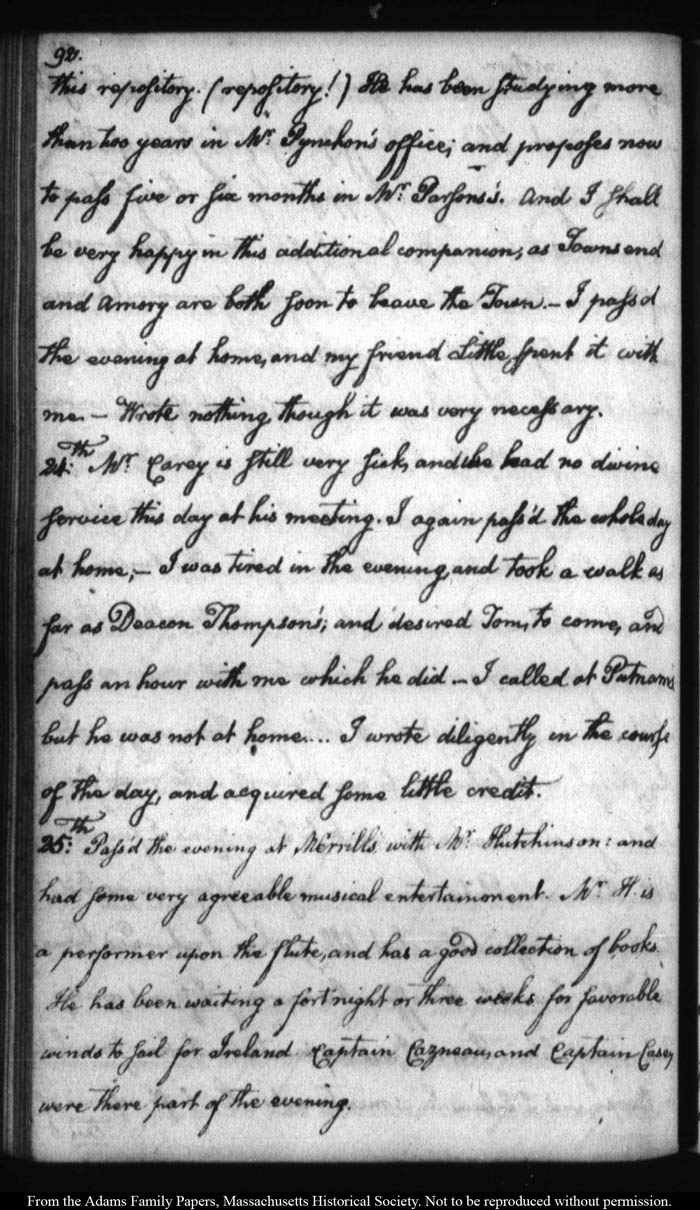 92.
this repository. (repository!) He has been studying more
than two years in Mr. Pynchon's office; and proposes now
to pass five or six months in Mr. Parsons's. And I shall
be very happy in this additional companion, as Townsend
and Amory are both soon to leave the Town. — I pass'd
the evening at home, and my friend Little, spent it with
me. — Wrote nothing, though it was very necessary.
24th: Mr. Carey is still very sick, and we had no divine
service this day at his meeting. I again pass'd the whole day
at home, — I was tired in the evening, and took a walk as
far as Deacon Thompson's; and desired Tom, to come, and
pass an hour with me which he did — I called at Putnam's
but he was not at home.... I wrote diligently in the course
of the day, and acquired some little credit.
25th: Pass'd the evening at Merrills with Mr. Hutchinson: and
had some very agreeable musical entertainment. Mr. H. is
a performer upon the flute, and has a good collection of books.
He has been waiting a fortnight or three weeks for favorable
winds to sail for Ireland. Captain Cazneau, and Captain Casey
were there part of the evening.
From the Adams Family Papers, Massachusetts Historical Society. Not to be reproduced without permission.